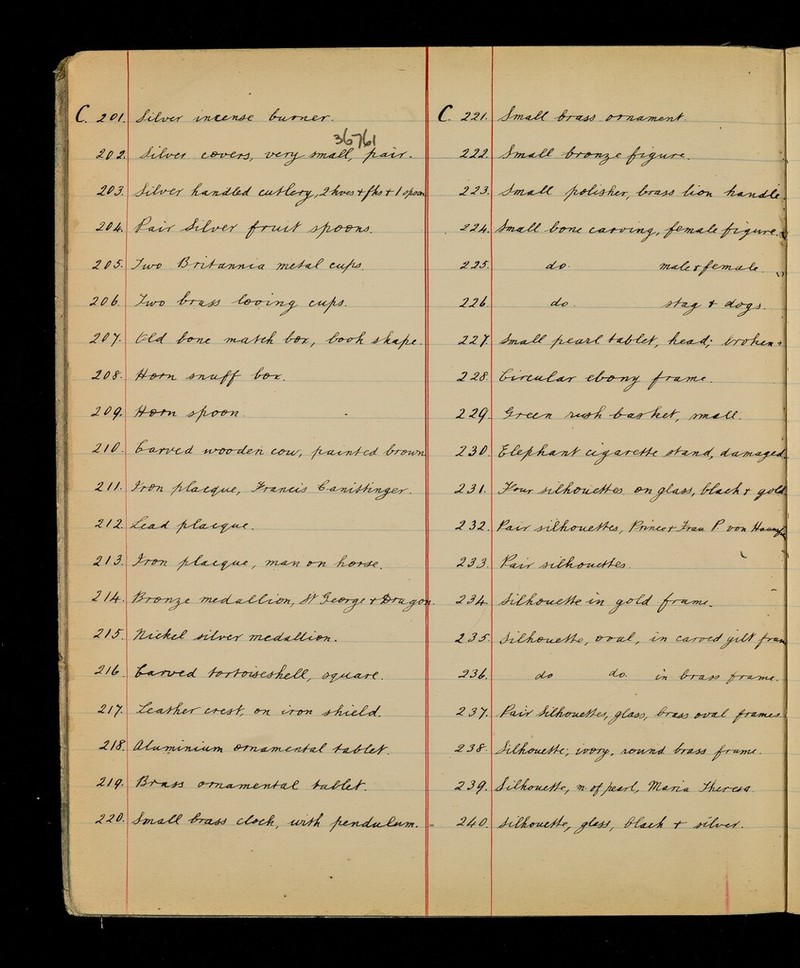 C. 201. Silver incense burner.
36761
202. Silver covers, very small, pair.
203. Silver handled cutlery, 2 knves + fks + 1 spoon
204. Pair Silver fruit spoons.
205. Two Britannia metal cups.
206. Two brass loving cups.
207. Old bone match box, book shape.
208. Horn snuff box.
209. Horn spoon
210. Carved wooden cow, painted brown
211. Iron placque, Francis Canittinger.
212. Lead placque.
213. Iron placque, man on horse.
214. Bronze medallion, St George + Dragon.
215. Nickel silver medallion.
216. Carved tortoiseshell, square.
217. Leather crest, on iron shield.
218. Aluminium ornamental tablet.
219. Brass ornamental tablet.
220. Small brass clock, with pendulum.
C. 221. Small brass ornament.
222. Small bronze figure.
223. Small polisher, brass lion handle.
224. Small bone carving, female figure.
225. do. male & female.
226. do. stag + dogs.
227. Small pearl tablet, head; broken
228. Circular ebony frame.
229. Green rush basket, small.
230. Elephant cigarette stand, damaged.
231. Four silhouettes on glass, black + gold
232. Pair silhouettes, Prince + Frau P. von
233. Pair silhouettes.
234. Silhouette in gold frame.
235. Silhouette, oval, in carved gilt fram
236. do do. in brass frame.
237. Pair Silhouettes, glass, brass oval frames
238. Silhouette, ivory, round brass frame.
239. Silhouette, m. of pearl, Maria Theresa
240. Silhouette, glass, black + silver.